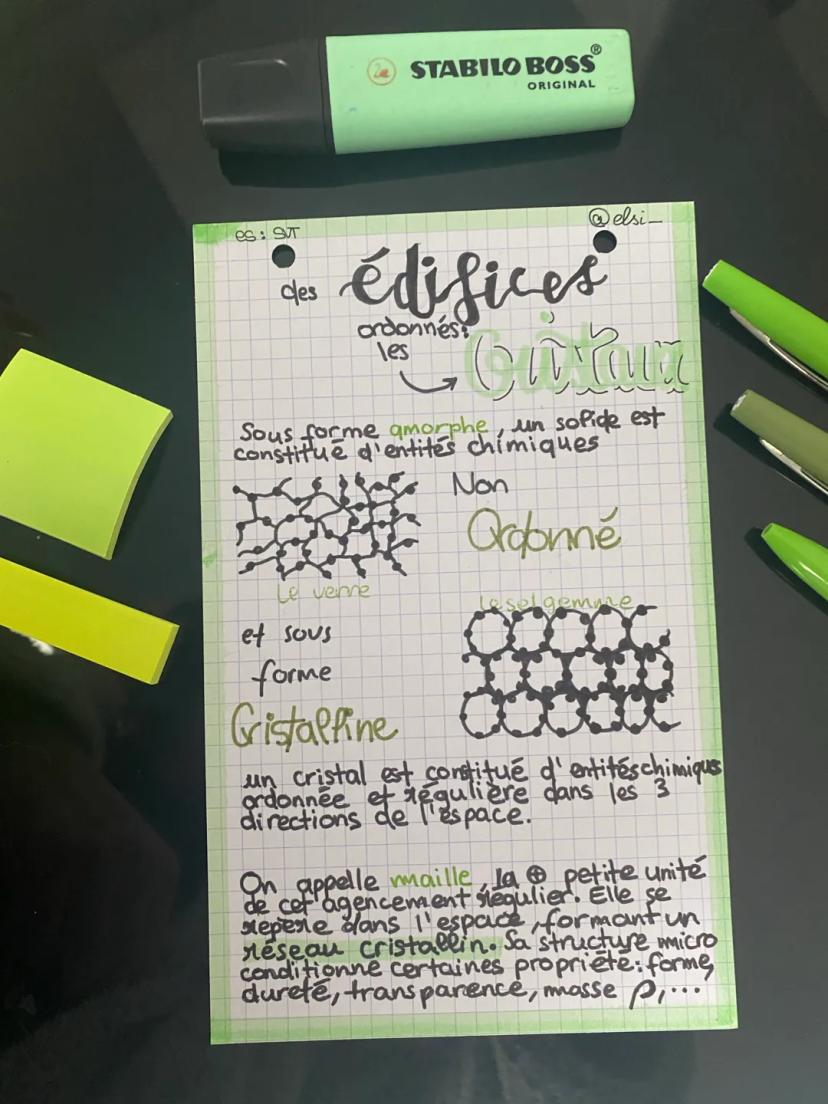 STABILO BOSS®
ORIGINAL
es: SVT
@elsi_
des édifices
ordonnés:
les
Cristaux
Sous forme amorphe, un solide est
constitué d'entités chimiques
Non
Ordonné
Le verre
Le sel gemme
et sous
forme
Cristalline
un cristal est constitué d'entités chimiques
ordonnée et régulière dans les 3
directions de l'espace.
On appelle maille, la ⊕ petite unité
de cet agencement régulier. Elle se
repère dans l'espace, formant un
réseau cristallin. Sa structure micro
conditionne certaines propriété: forme,
dureté, transparence, masse ρ,...